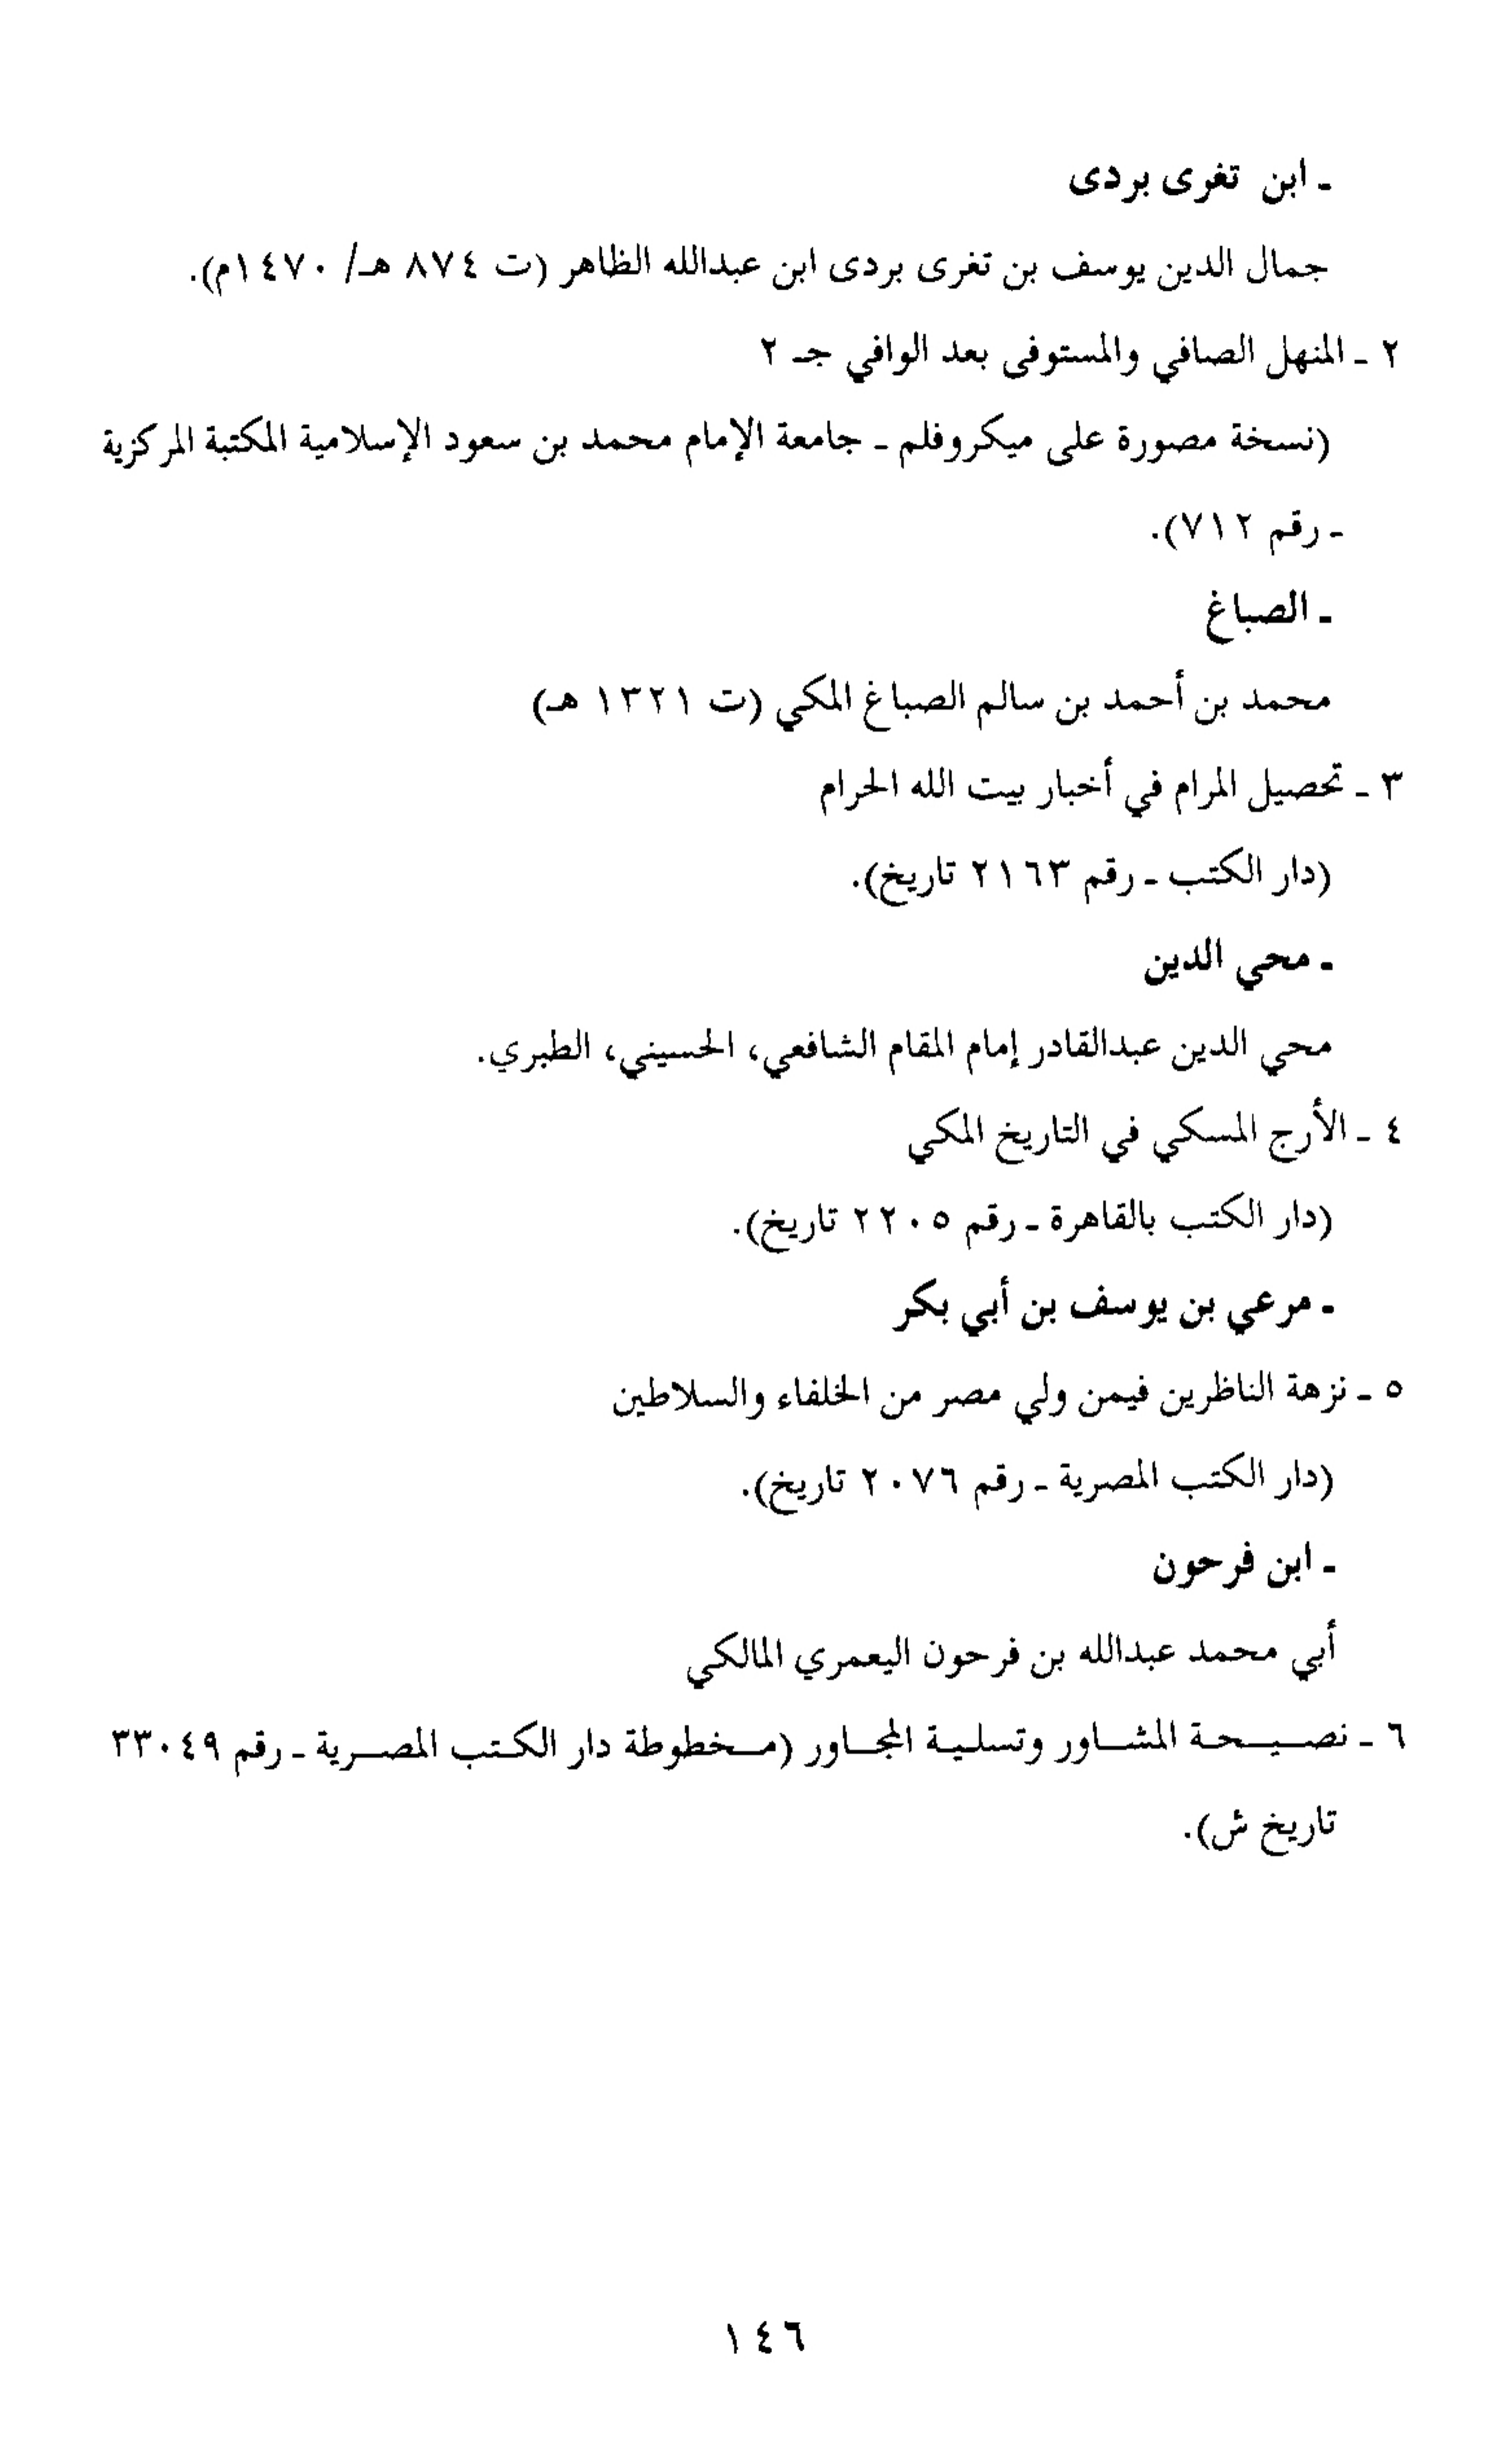 ـ ابن تغرى بردى
جمال الدين يوسف بن تغرى بردى ابن عبدالله الظاهر (ت ٨٧٤ هـ/ ١٤٧٠م).
٢ ـ المنهل الصافي والمستوفى بعد الوافي جـ ٢
(نسخة مصورة على ميكروفلم ـ جامعة الإمام محمد بن سعود الإسلامية المكتبة المركزية
ـ رقم ٧١٢).
ـ الصباغ
محمد بن أحمد بن سالم الصباغ المكي (ت ١٣٢١ هـ)
٣ ـ تحصيل المرام في أخبار بيت الله الحرام
(دار الكتب ـ رقم ٢١٦٣ تاريخ).
ـ محي الدين
محي الدين عبدالقادر إمام المقام الشافعي، الحسيني، الطبري.
٤ ـ الأرج المسكي في التاريخ المكي
(دار الكتب بالقاهرة ـ رقم ٢٢٠٥ تاريخ).
ـ مرعي بن يوسف بن أبي بكر
٥ ـ نزهة الناظرين فيمن ولي مصر من الخلفاء والسلاطين
(دار الكتب المصرية ـ رقم ٢٠٧٦ تاريخ).
ـ ابن فرحون
أبي محمد عبدالله بن فرحون اليعمري المالكي
٦ ـ نصيحة المشاور وتسلية المجاور (مخطوطة دار الكتب المصرية ـ رقم ٣٣٠٤٩
تاريخ ش).
١٤٦